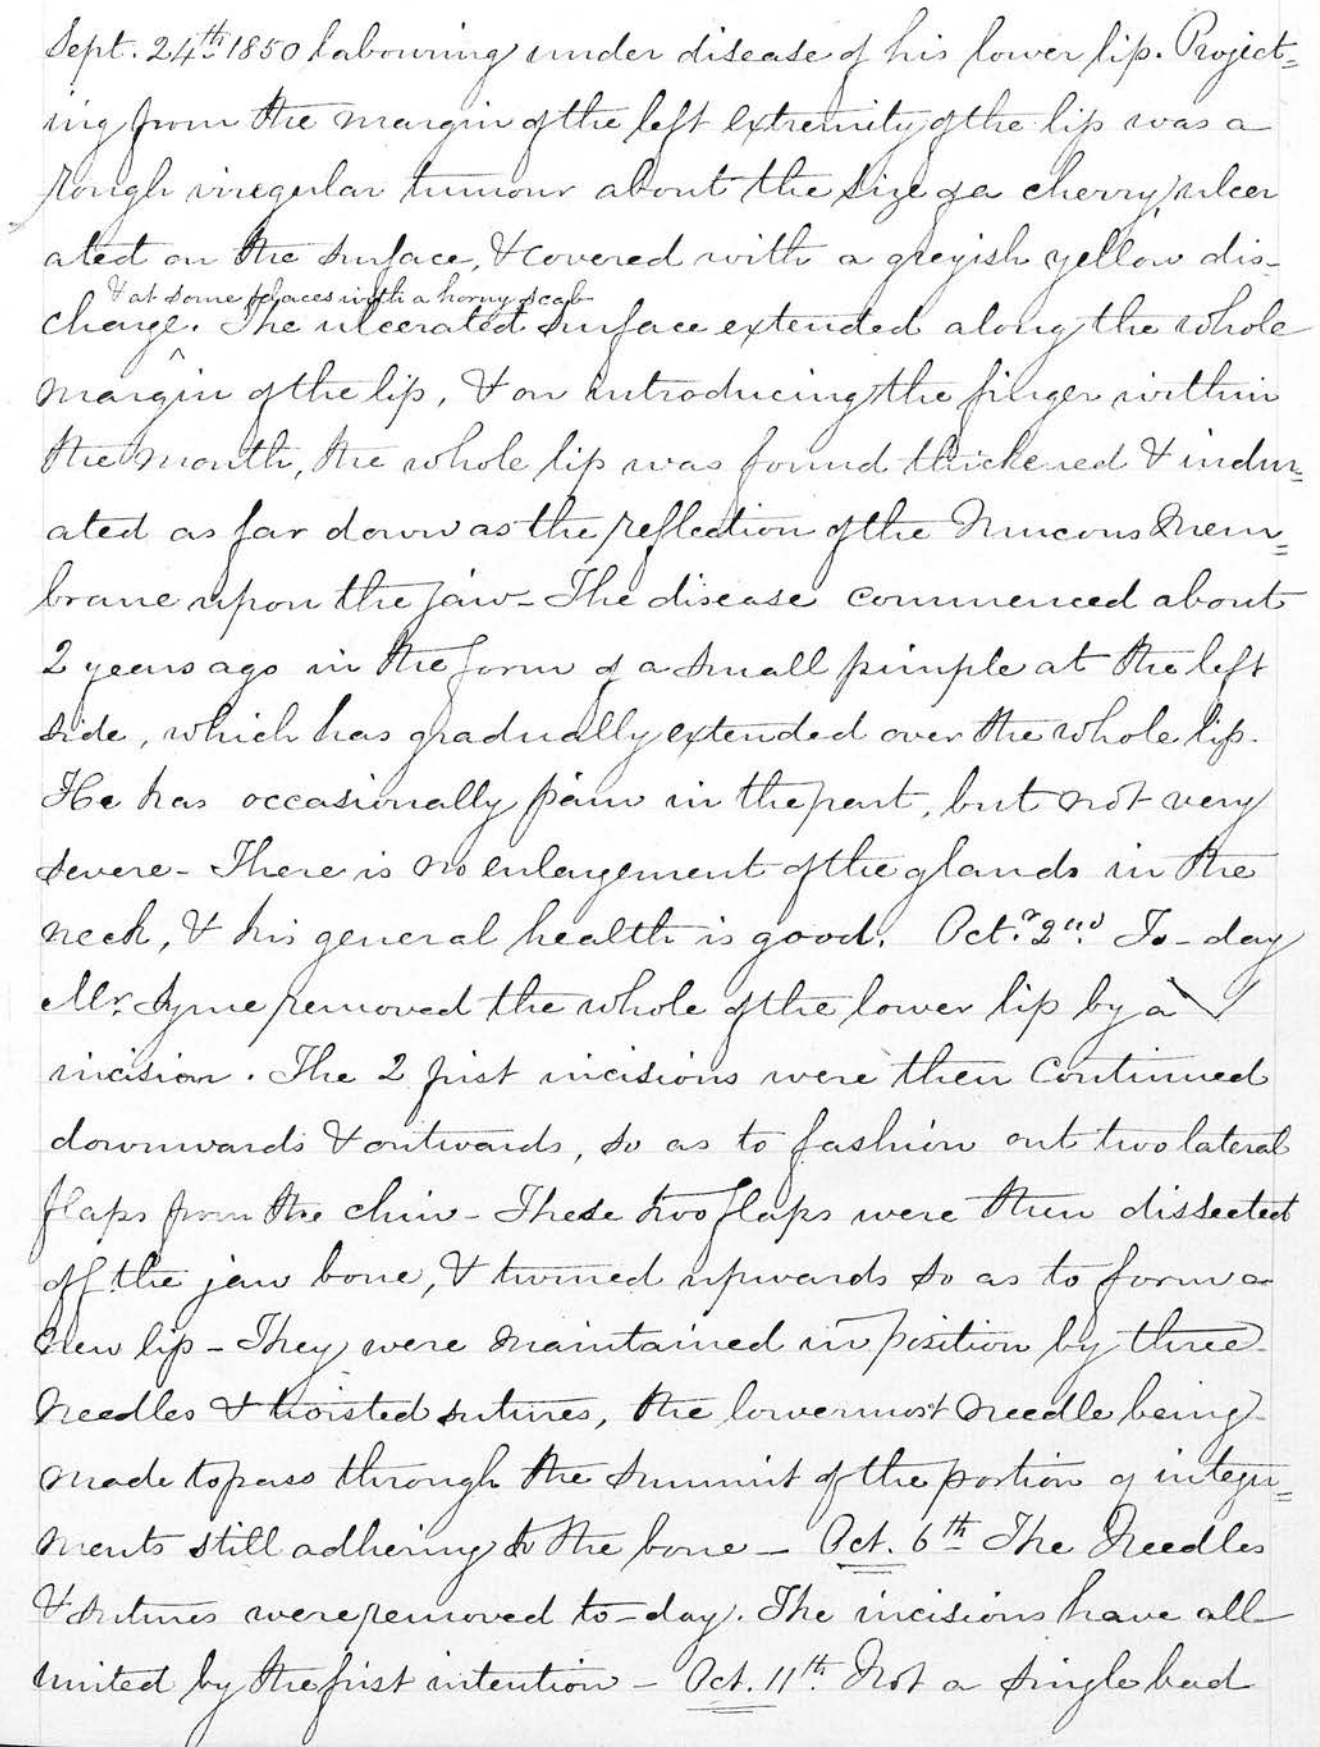 Sept. 24th 1850 labouring under disease of his lower lip. Project=
ing from the margin of the left extremity of the lip was a
rough irregular tumour about the size of a cherry, ulcer
ated on the surface, & covered with a greyish yellow dis-
& at some places with a horny scab
charge. The ulcerated surface extended along the whole
margin of the lip, & on introducing the finger within
the mouth, the whole lip was found thickened & indur=
ated as far down as the reflection of the Mucous Mem=
brane upon the jaw - The disease commenced about
2 years ago in the form of a small pimple at the left
side, which has gradually extended over the whole lip.
He has occasionally pain in the part, but not very
severe - There is no enlargement of the glands in the
neck, & his general health is good. Octr. 2nd To-day
Mr. Syme removed the whole of the lower lip by a V
incision. The 2 first incisions were then continued
downwards & outwards, so as to fashion out two lateral
flaps from the chin - These two flaps were then dissected
off the jaw bone, & turned upwards so as to form a
new lip - They were maintained in position by three
Needles & twisted sutures, the lowermost needle being
made to pass through the summit of the portion of integu=
ments still adhering to the bone - Oct. 6th The Needles
& sutures were removed to-day. The incisions have all
united by the first intention - Oct. 11th. Not a single bad